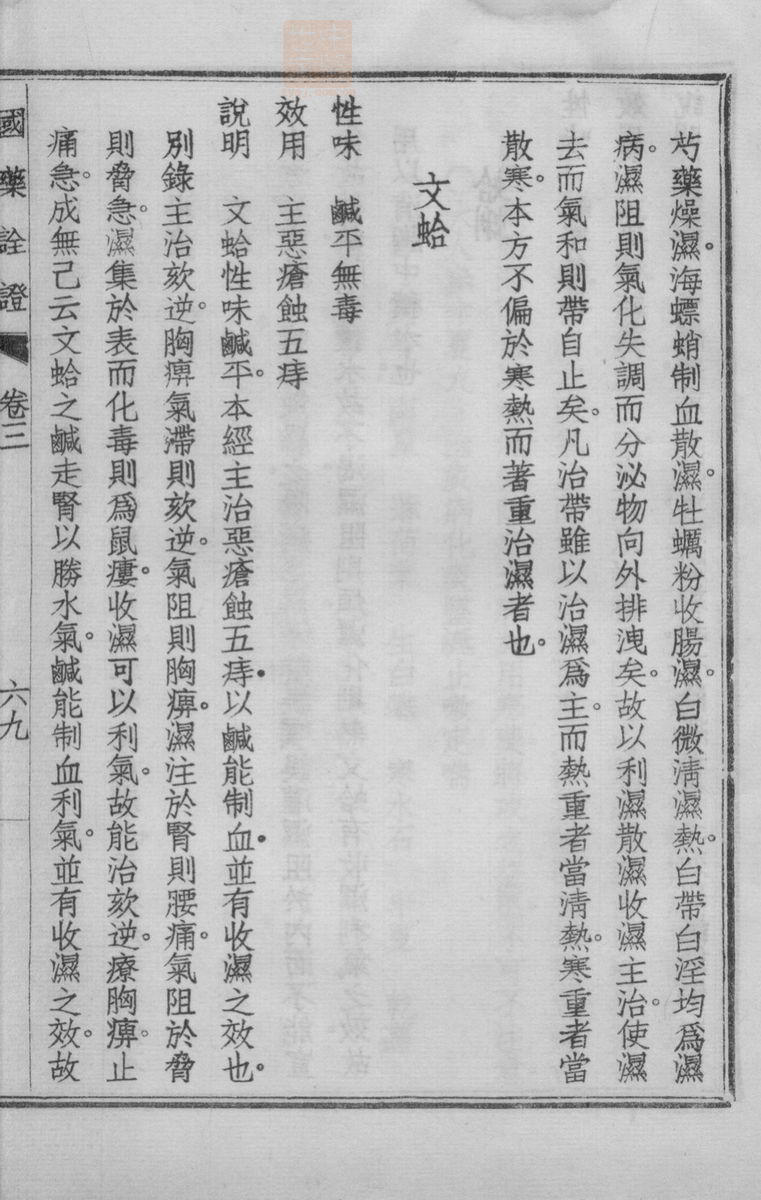 芍藥燥濕。海螵蛸制血散濕。牡蠣粉收腸濕。白微清濕熱。白帶白淫均爲濕
病。濕阻則氣化失調而分泌物向外排洩矣。故以利濕散濕收濕主治。使濕
去而氣和則帶自止矣。凡治帶雖以治濕爲主。而熱重者當清熱。寒重者當
散寒。本方不偏於寒熱而著重治濕者也。
文蛤
性味　鹹平無毒
效用　主惡瘡蝕五痔
說明　文蛤性味鹹平。本經主治惡瘡蝕五痔。以鹹能制血。並有收濕之效也。
別錄主治欬逆。胸痹氣滯則欬逆。氣阻則胸痹。濕注於腎則腰痛。氣阻於脅
則脅急。濕集於表而化毒則爲鼠瘻。收濕可以利氣。故能治欬逆。療胸痹。止
痛急。成無己云文蛤之鹹走腎以勝水氣。鹹能制血利氣。並有收濕之效。故
國藥詮證　卷三　六九